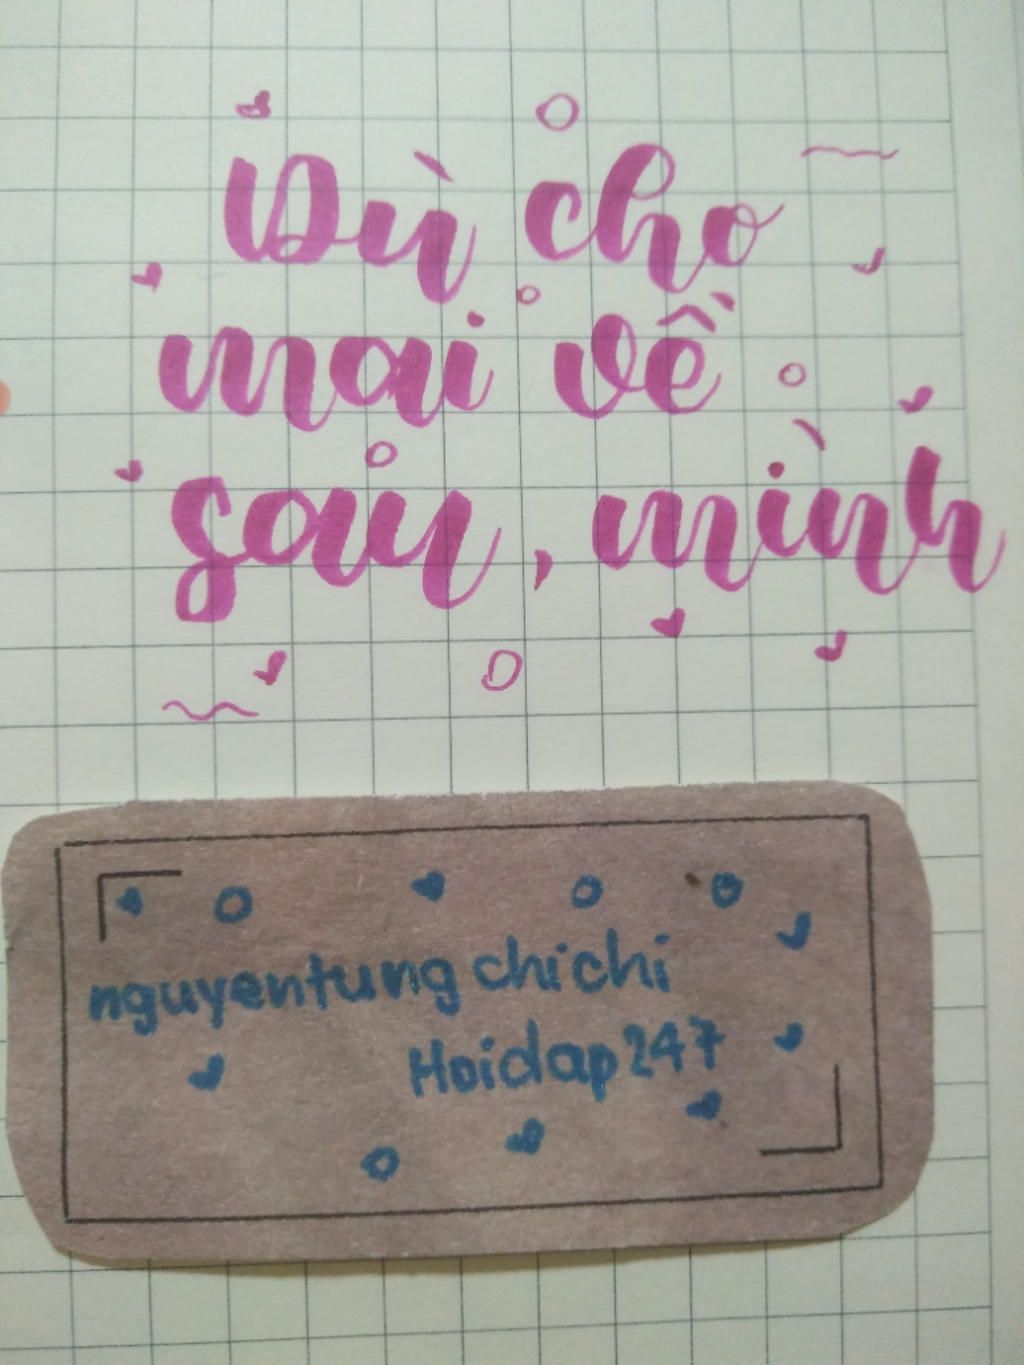 Dù cho
mai về
sau, mình
nguyentung chichi
Hoidap247